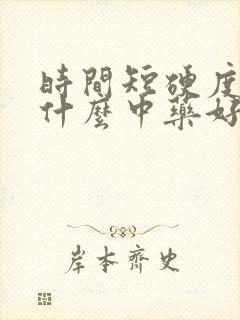 時間短硬度
什麼中藥好
岸本齊史